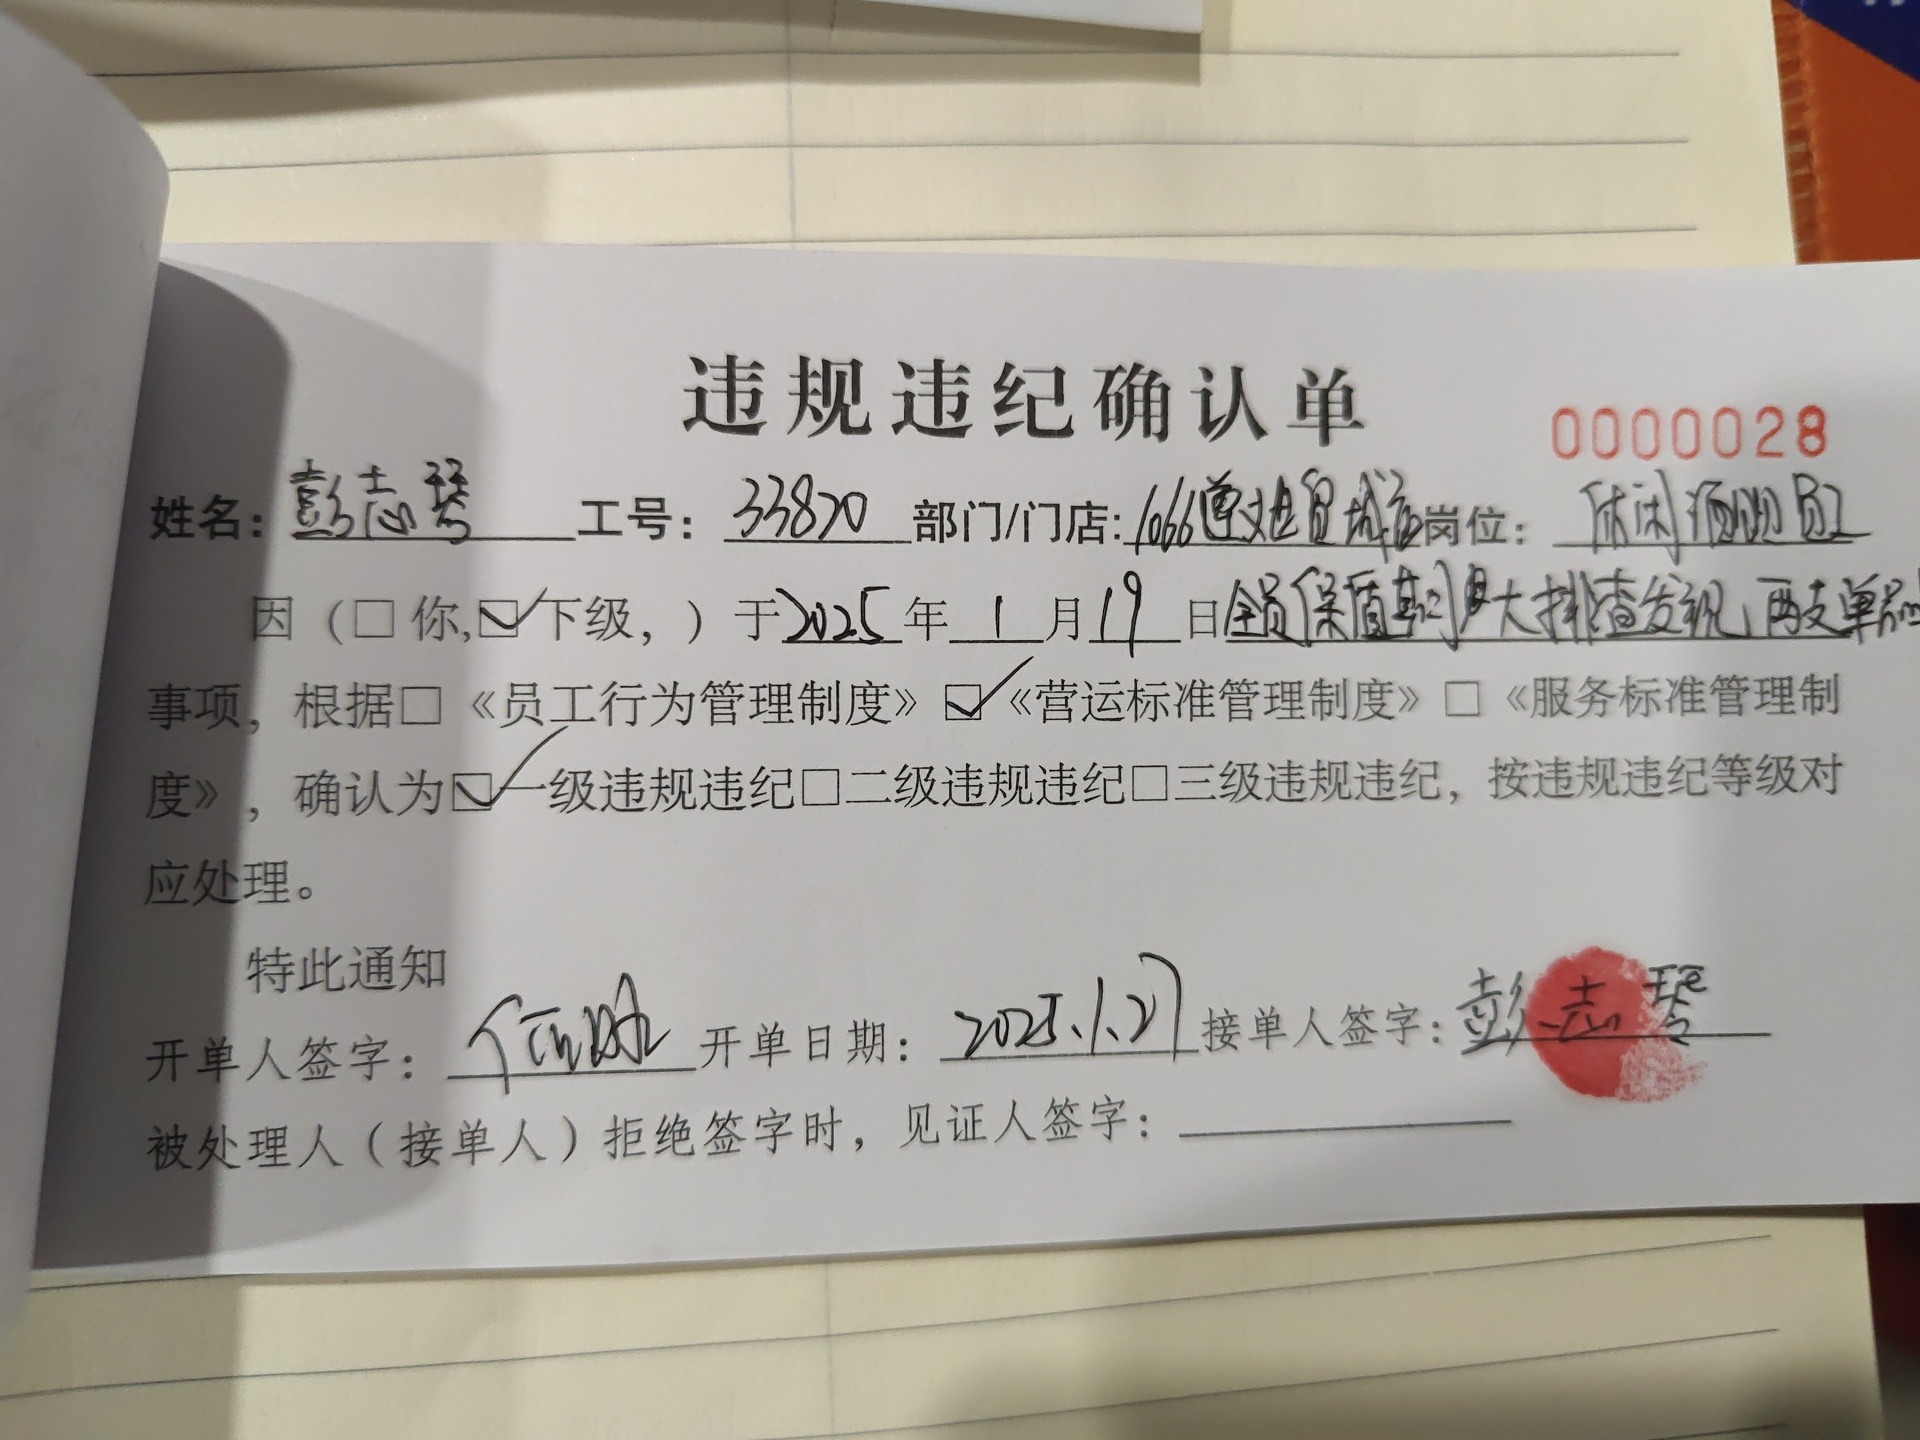 违规违纪确认单
0000028
姓名：彭志琴 工号：33870 部门/门店：1066遵义世贸城店 岗位：休闲 员工
因（□你，☑下级，）于2025年1月19日全员保质期 大排查发现，两支单品
事项，根据□《员工行为管理制度》☑《营运标准管理制度》□《服务标准管理制
度》，确认为☑一级违规违纪□二级违规违纪□三级违规违纪，按违规违纪等级对
应处理。
特此通知
开单人签字： 开单日期：2025.1.27 接单人签字：彭志琴
被处理人（接单人）拒绝签字时，见证人签字：